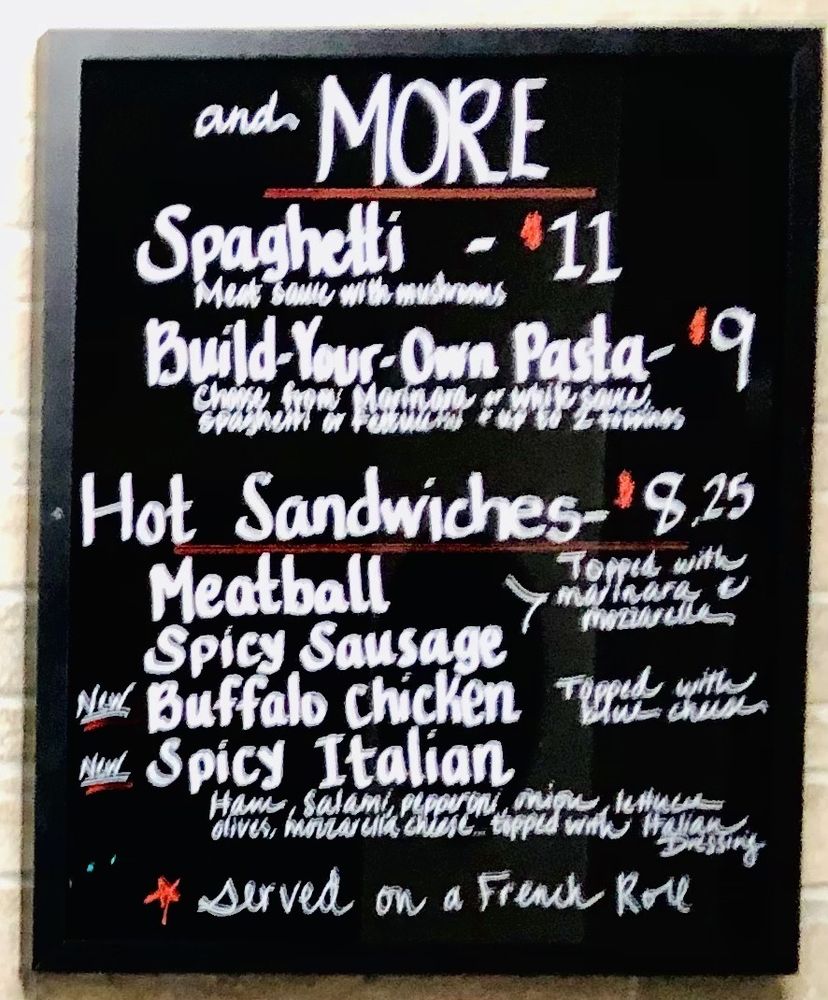 and MORE
Spaghetti - $11
Meat sauce with mushrooms
Build-Your-Own Pasta - $9
Choose from: Marinara or white sauce,
spaghetti or Fettuccini + up to 2 toppings
Hot Sandwiches - $8.25
Meatball
Topped with
marinara &
mozzarella
Spicy Sausage
New Buffalo Chicken
Topped with
blue cheese
New Spicy Italian
Ham, Salami, pepperoni, onion, lettuce
olives, mozzarella cheese... topped with Italian
Dressing
☆ Served on a French Roll